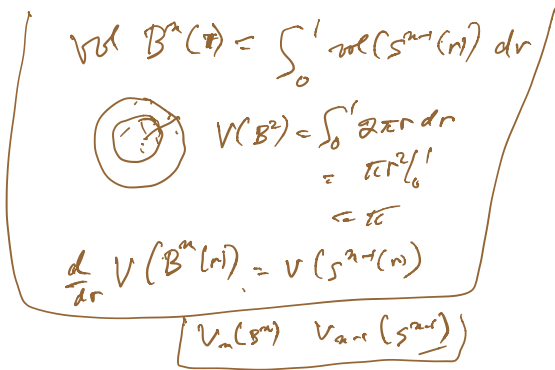 vol Bⁿ(1) = ∫₀¹ vol(Sⁿ⁻¹(r)) dr
V(B²) = ∫₀¹ 2πr dr
= πr²|₀¹
= π
d/dr V(Bⁿ(r)) = V(Sⁿ⁻¹(r))
Vₙ(Bⁿ) Vₙ₋₁(Sⁿ⁻¹)